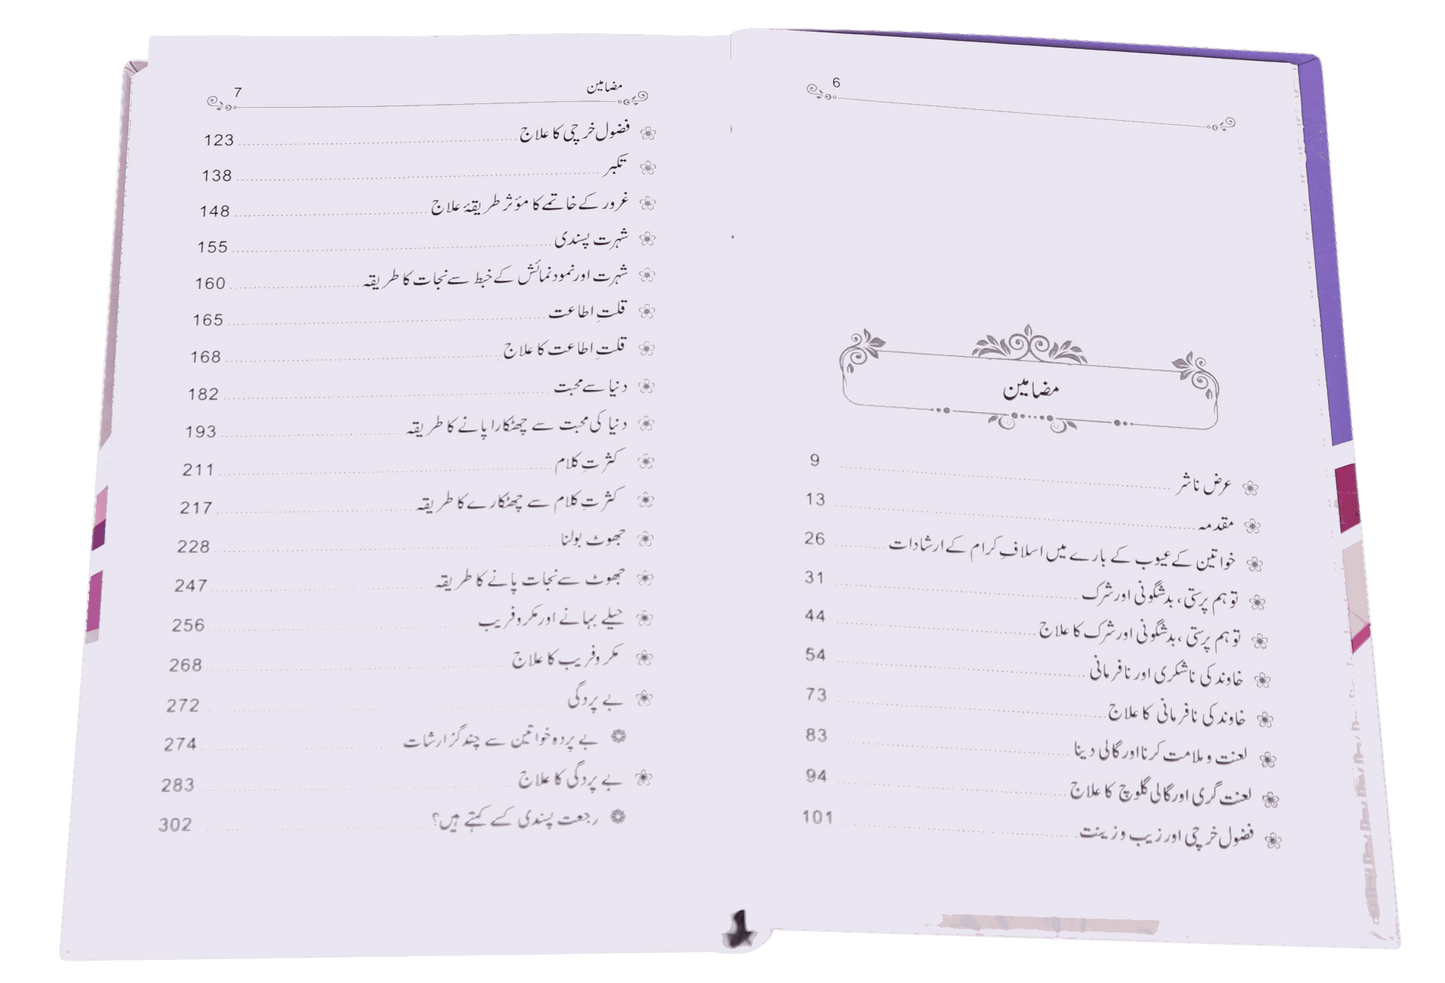 6
مضامین
عرض ناشر 9
مقدمہ 13
خواتین کے عیوب کے بارے میں اسلافِ کرام کے ارشادات 26
توہم پرستی، بدشگونی اور شرک 31
توہم پرستی، بدشگونی اور شرک کا علاج 44
خاوند کی ناشکری اور نافرمانی 54
خاوند کی نافرمانی کا علاج 73
لعنت و ملامت کرنا اور گالی دینا 83
لعنت گری اور گالی گلوچ کا علاج 94
فضول خرچی اور زیب و زینت 101
مضامین 7
فضول خرچی کا علاج 123
تکبر 138
غرور کے خاتمے کا مؤثر طریقۂ علاج 148
شہرت پسندی 155
شہرت اور نمود نمائش کے خبط سے نجات کا طریقہ 160
قلتِ اطاعت 165
قلتِ اطاعت کا علاج 168
دنیا سے محبت 182
دنیا کی محبت سے چھٹکارا پانے کا طریقہ 193
کثرتِ کلام 211
کثرتِ کلام سے چھٹکارے کا طریقہ 217
جھوٹ بولنا 228
جھوٹ سے نجات پانے کا طریقہ 247
حیلے بہانے اور مکر و فریب 256
مکر و فریب کا علاج 268
بے پردگی 272
بے پردہ خواتین سے چند گزارشات 274
بے پردگی کا علاج 283
رجعت پسندی کسے کہتے ہیں؟ 302